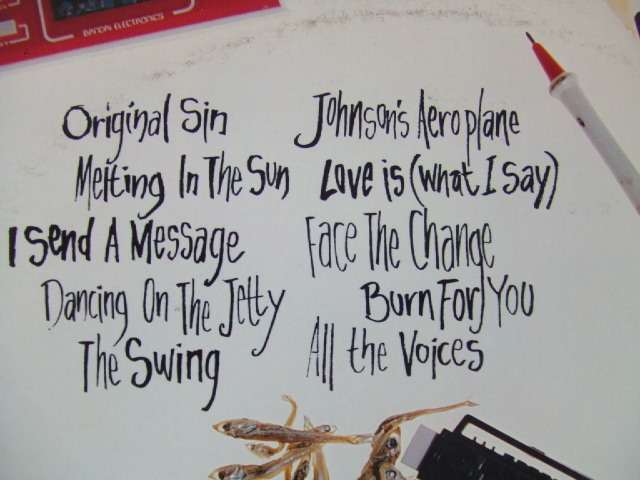 BANDAI ELECTRONICS
Original Sin
Melting In The Sun
I Send A Message
Dancing On The Jetty
The Swing
Johnson's Aeroplane
Love is (what I say)
Face The Change
Burn For You
All the Voices